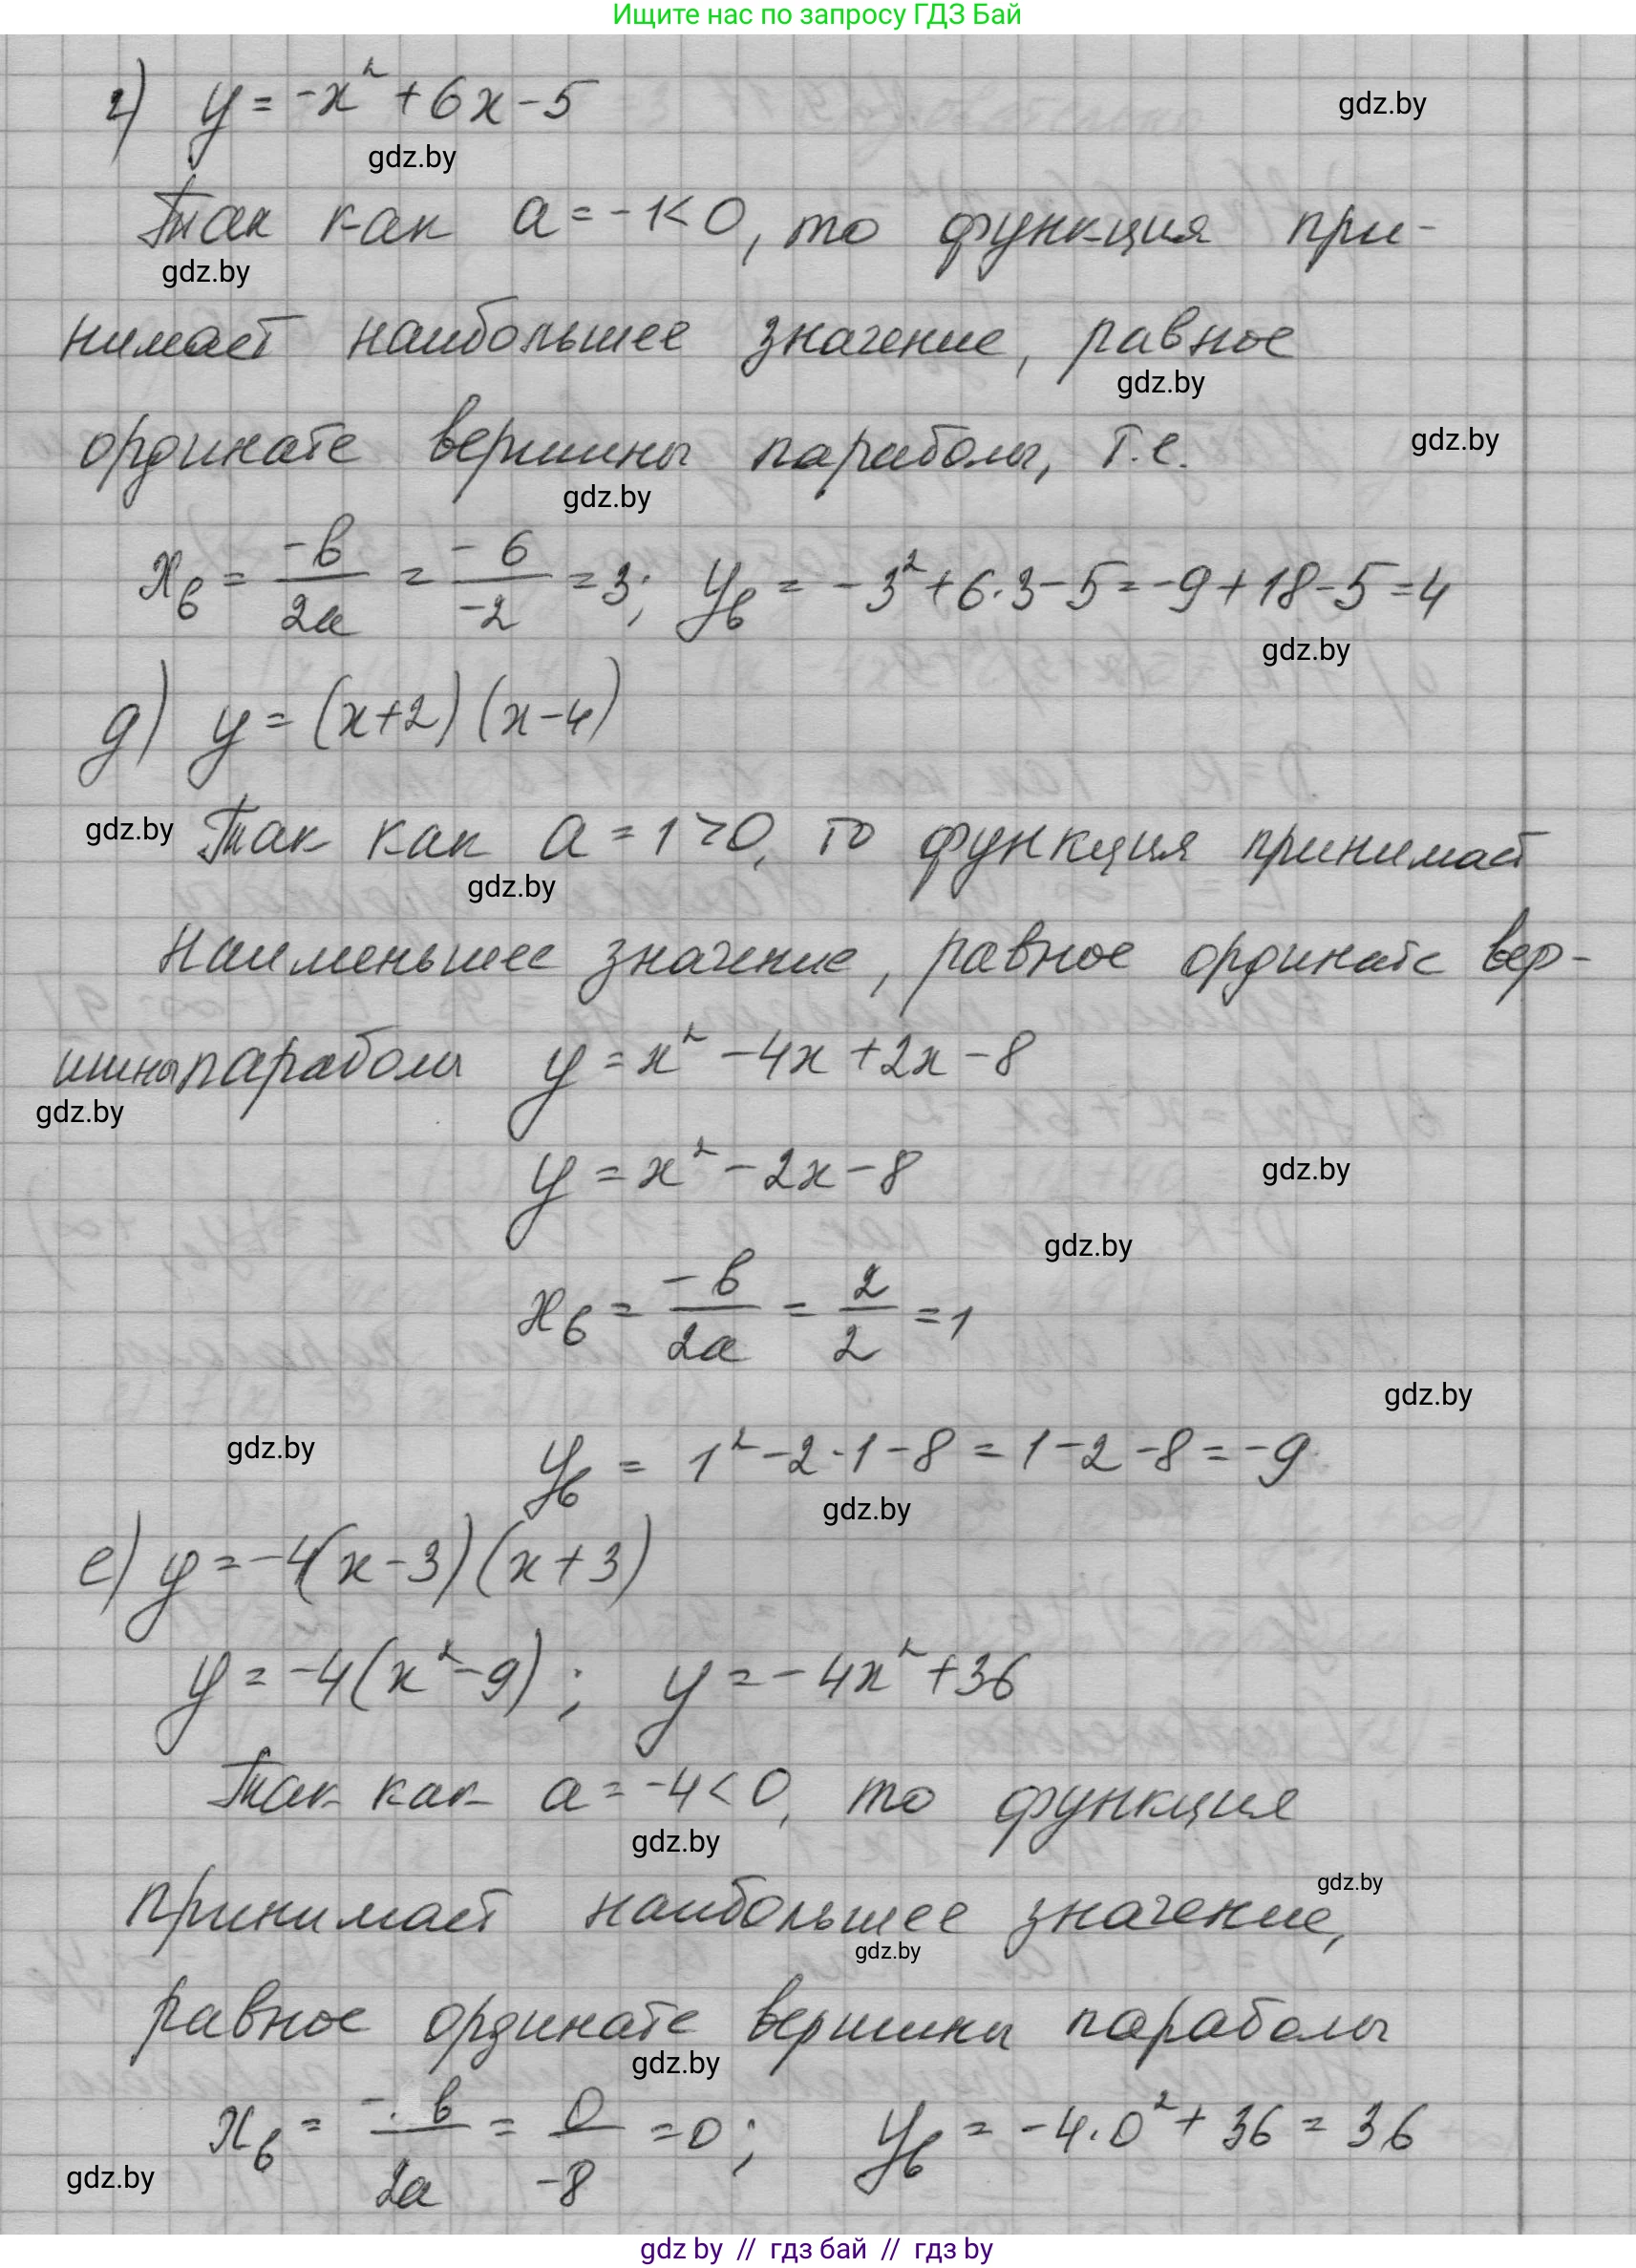 Ищите нас по запросу ГДЗ Бай
г) y = -x² + 6x - 5
gdz.by
gdz.by
Так как a = -1 < 0, то функция при-
gdz.by
нимает наибольшее значение, равное
gdz.by
ординате вершины параболы, т.е.
gdz.by
gdz.by
x_в = -в/2a = -6/-2 = 3; y_в = -3² + 6·3 - 5 = -9 + 18 - 5 = 4
gdz.by
д) y = (x+2)(x-4)
gdz.by Так как a = 1 > 0, то функция принимает
gdz.by
наименьшее значение, равное ординате вер-
шины параболы y = x² - 4x + 2x - 8
gdz.by
y = x² - 2x - 8
gdz.by
gdz.by
x_в = -в/2a = 2/2 = 1
gdz.by
gdz.by
y_в = 1² - 2·1 - 8 = 1 - 2 - 8 = -9
gdz.by
е) y = -4(x-3)(x+3)
y = -4(x² - 9); y = -4x² + 36
Так как a = -4 < 0, то функция
gdz.by
gdz.by
принимает наибольшее значение,
gdz.by
равное ординате вершины параболы
gdz.by
x_в = -в/2a = 0/-8 = 0; y_в = -4·0² + 36 = 36
gdz.by
gdz by // гдз бай // гдз by